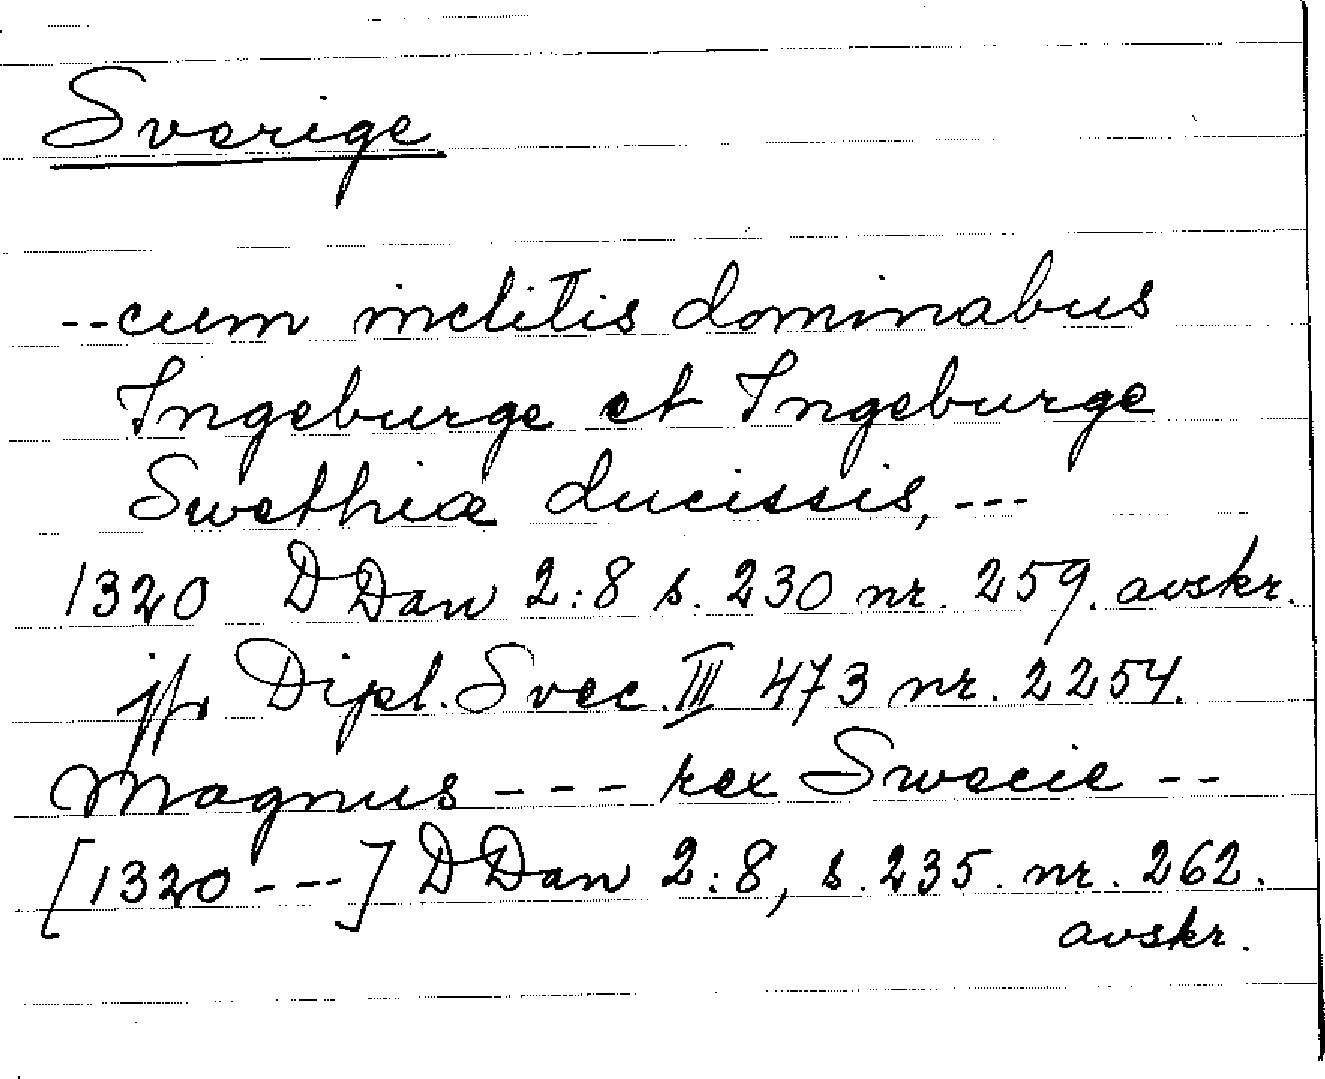 Sverige
--cum inclitis dominabus
Ingeburge et Ingeburge
Swethiæ ducissis, ---
1320 DDan 2:8 s. 230 nr. 259. avskr.
jfr Dipl. Svec. III 473 nr. 2254.
Magnus --- rex Swecie --
[1320---] DDan 2:8, s. 235. nr. 262.
avskr.